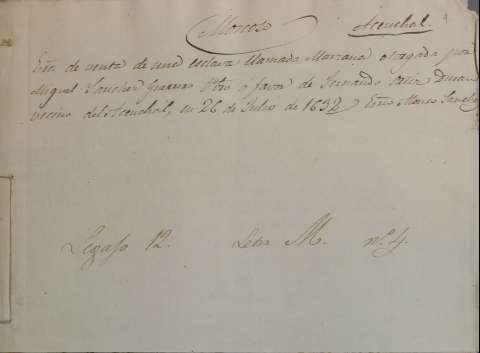 Morcoso Aceuchal.
Esra. de venta de una esclava llamada Mariana otorgada por
Miguel Sanchez Guerrero Pbro a favor de Fernando Ortiz Duran
vecino del Aceuchal, en 26 de Julio de 1632 Esno Marcos Sanchez
Legajo 12. Letra M. nº 4.